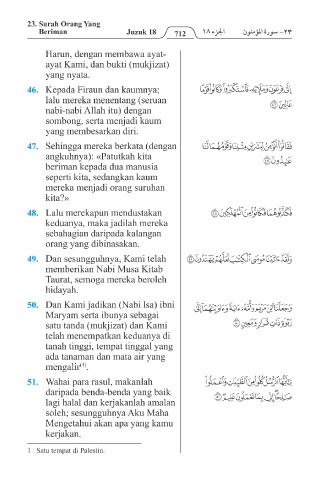 23. Surah Orang Yang
Beriman
Juzuk 18
712
الجزء ١٨
٢٣- سورة المؤمنون
Harun, dengan membawa ayat-
ayat Kami, dan bukti (mukjizat)
yang nyata.
46. Kepada Firaun dan kaumnya;
lalu mereka menentang (seruan
nabi-nabi Allah itu) dengan
sombong, serta menjadi kaum
yang membesarkan diri.
47. Sehingga mereka berkata (dengan
angkuhnya): «Patutkah kita
beriman kepada dua manusia
seperti kita, sedangkan kaum
mereka menjadi orang suruhan
kita?»
48. Lalu merekapun mendustakan
keduanya, maka jadilah mereka
sebahagian daripada kalangan
orang yang dibinasakan.
49. Dan sesungguhnya, Kami telah
memberikan Nabi Musa Kitab
Taurat, semoga mereka beroleh
hidayah.
50. Dan Kami jadikan (Nabi Isa) ibni
Maryam serta ibunya sebagai
satu tanda (mukjizat) dan Kami
telah menempatkan keduanya di
tanah tinggi, tempat tinggal yang
ada tanaman dan mata air yang
mengalir(1).
51. Wahai para rasul, makanlah
daripada benda-benda yang baik
lagi halal dan kerjakanlah amalan
soleh; sesungguhnya Aku Maha
Mengetahui akan apa yang kamu
kerjakan.
إِلَىٰ فِرْعَوْنَ وَمَلَإِيْهِۦ فَٱسْتَكْبَرُوا۟ وَكَانُوا۟ قَوْمًا
عَالِينَ ٤٦
فَقَالُوٓا۟ أَنُؤْمِنُ لِبَشَرَيْنِ مِثْلِنَا وَقَوْمُهُمَا لَنَا
عَٰبِدُونَ ٤٧
فَكَذَّبُوهُمَا فَكَانُوا۟ مِنَ ٱلْمُهْلَكِينَ ٤٨
وَلَقَدْ ءَاتَيْنَا مُوسَى ٱلْكِتَٰبَ لَعَلَّهُمْ يَهْتَدُونَ ٤٩
وَجَعَلْنَا ٱبْنَ مَرْيَمَ وَأُمَّهُۥٓ ءَايَةً وَءَاوَيْنَٰهُمَآ إِلَىٰ
رَبْوَةٍ ذَاتِ قَرَارٍ وَمَعِينٍ ٥٠
يَٰٓأَيُّهَا ٱلرُّسُلُ كُلُوا۟ مِنَ ٱلطَّيِّبَٰتِ وَٱعْمَلُوا۟
صَٰلِحًا إِنِّى بِمَا تَعْمَلُونَ عَلِيمٌ ٥١
1 Satu tempat di Palestin.